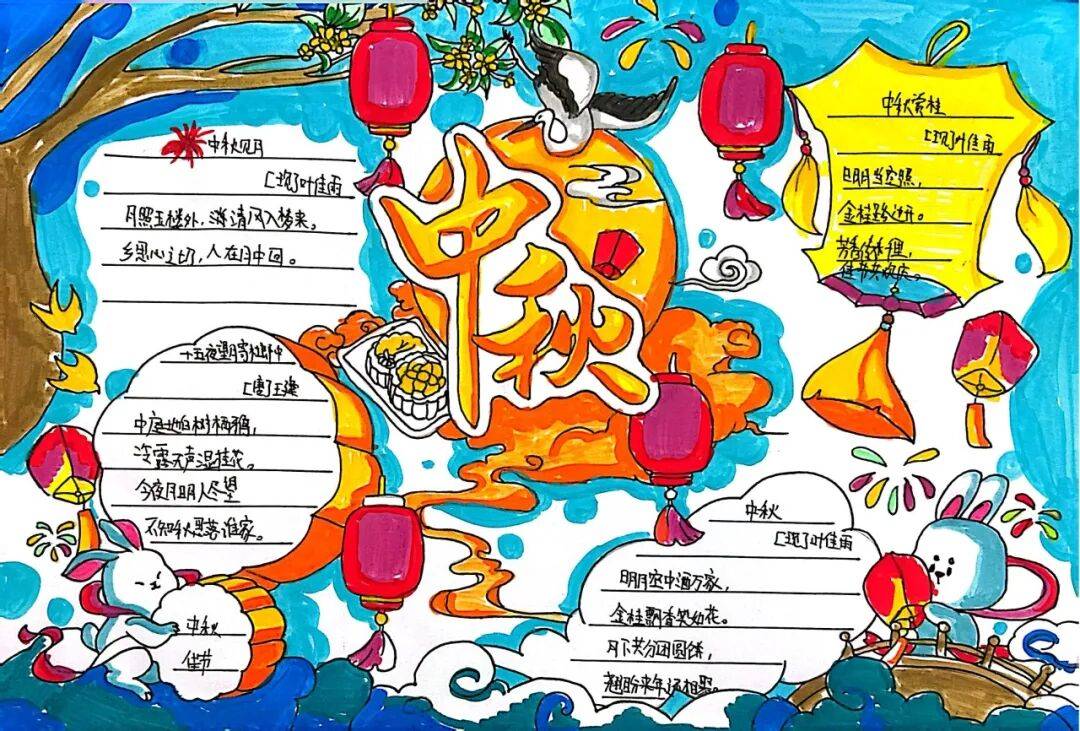 中秋
中秋见月
[现]叶佳雨
月照玉楼外,清风入梦来。
乡思心切,人在月中回。
中秋赏桂
[现]叶佳雨
明月当空照,
金桂路边开。
芳香传千里,
佳节共欢庆。
十五夜望月寄杜郎中
[唐]王建
中庭地白树栖鸦,
冷露无声湿桂花。
今夜月明人尽望
不知秋思落谁家。
中秋
佳节
中秋
[现]叶佳雨
明月空中洒万家,
金桂飘香笑如花。
月下共分团圆饼,
翘盼来年还相聚。